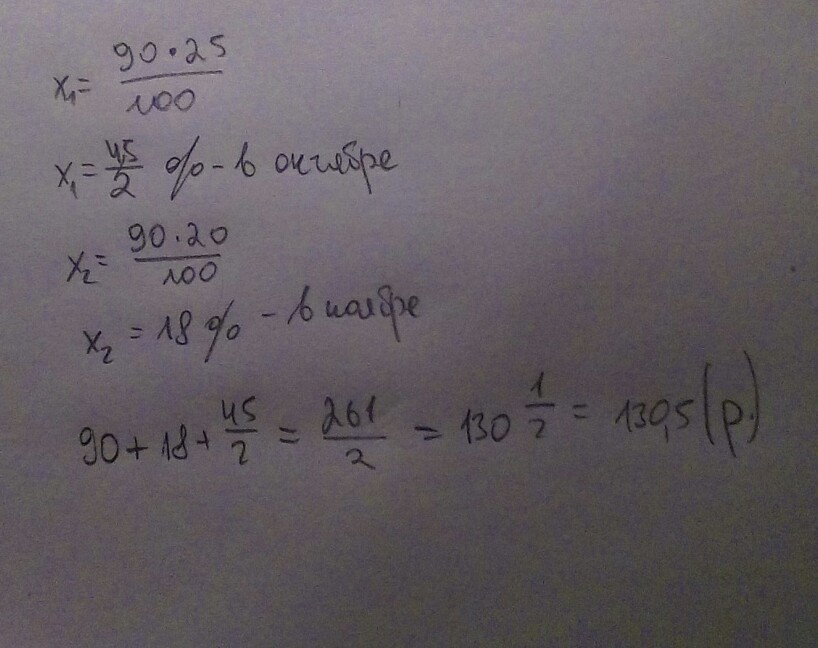 x₁= 90·25/100
x₁= 45/2 % - в октябре
x₂= 90·20/100
x₂ = 18% - в ноябре
90+18+45/2 = 261/2 = 130 1/2 = 130,5(р.)